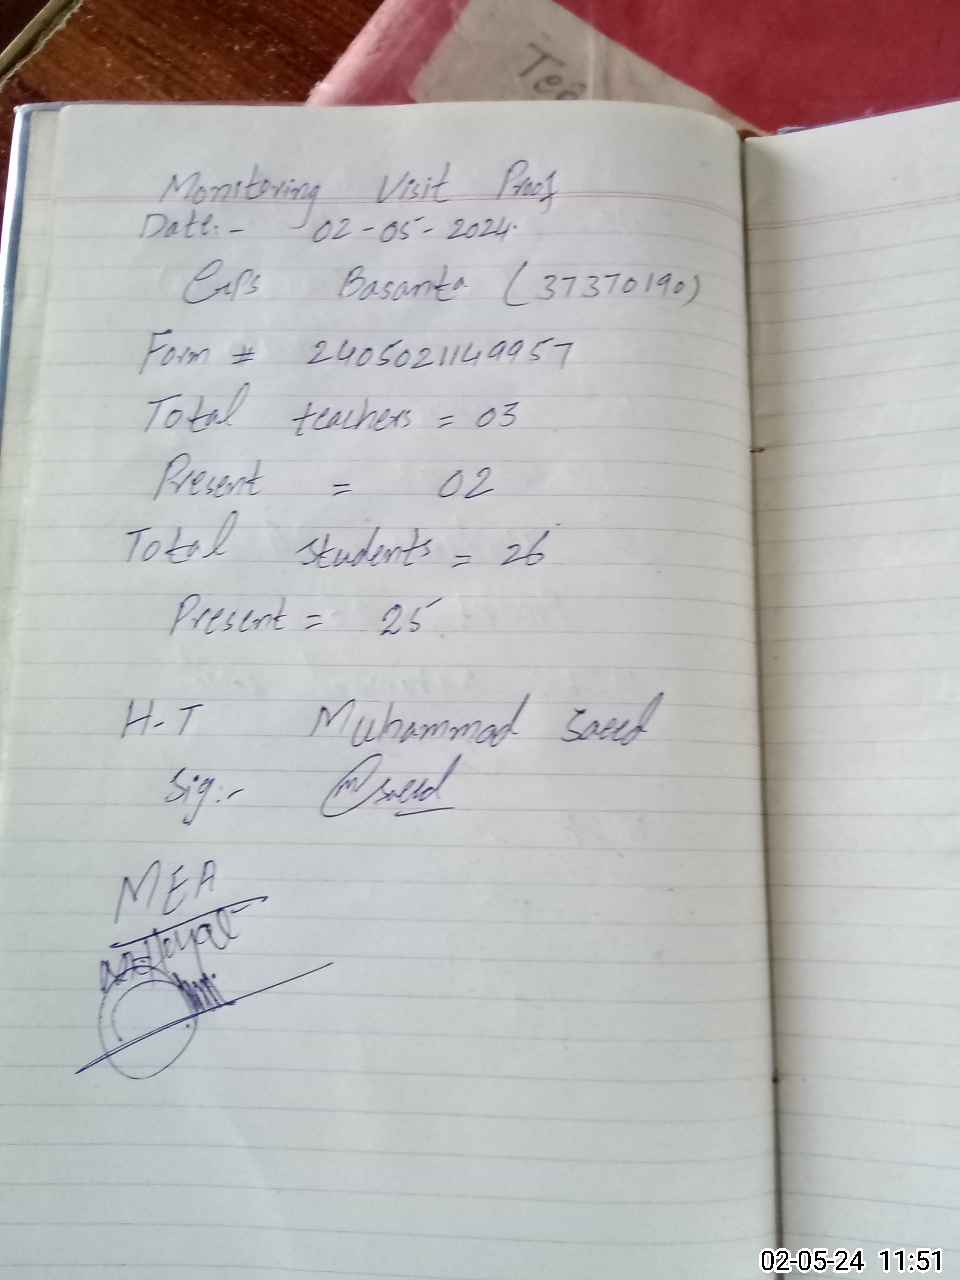 Tea
Monitoring Visit Proof
Date:- 02-05-2024.
GPS Basanta (37370190)
Form # 2405021149957
Total teachers = 03
Present = 02
Total students = 26
Present = 25
H-T Muhammad Saeed
Sig:- M Saeed
MEA
02-05-24 11:51